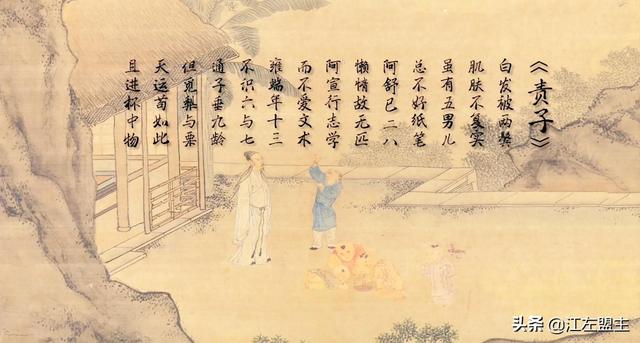 《责子》
白发被两鬓
肌肤不复实
虽有五男儿
总不好纸笔
阿舒已二八
懒惰故无匹
阿宣行志学
而不爱文术
雍端年十三
不识六与七
通子垂九龄
但觅梨与栗
天运苟如此
且进杯中物
头条 @江左盟主